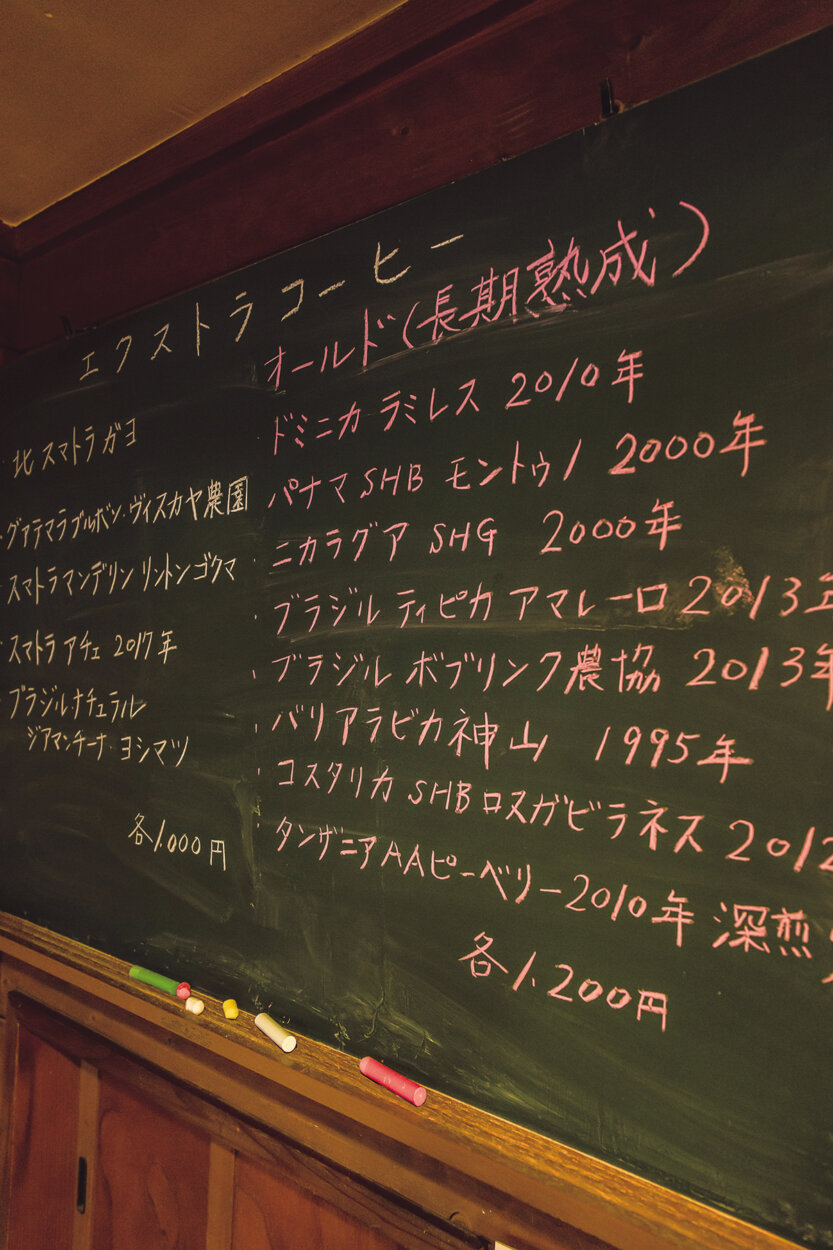 エクストラコーヒー
・北スマトラガヨ
・グァテマラブルボン・ヴィスカヤ農園
・スマトラマンデリン リントンゴクマ
・スマトラアチェ 2017年
・ブラジルナチュラル
ジアマンチーナ・ヨシマツ
各1.000円
オールド(長期熟成)
・ドミニカ ラミレス 2010年
・パナマSHB モントゥノ 2000年
・ニカラグア SHG 2000年
・ブラジル ティピカ アマレーロ 2013年
・ブラジル ボブリンク農協 2013年
・バリアラビカ神山 1995年
・コスタリカ SHBロスガビラネス 2012
・タンザニアAAピーベリー2010年 深煎
各1.200円